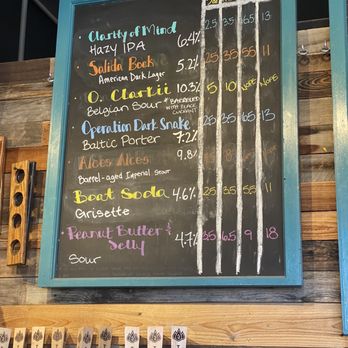 Clarity of Mind 2.5 3.5 6.5 13
Hazy IPA 6.4%
Salida Bock 5.2% 2.5 3.5 5.5 11
American Dark Lager
O. Clarkii 10.3% 5 10 Nope Nope
Belgian Sour
Operation Dark Snake 2.5 3.5 6.5 13
Baltic Porter 7.2%
Alces Alces 9.8%
Barrel-aged Imperial Stout
Boat Soda 4.6% 2.5 3.5 5.5 11
Grisette
Peanut Butter & 4.7% 3.5 6.5 9 18
Jelly
Sour